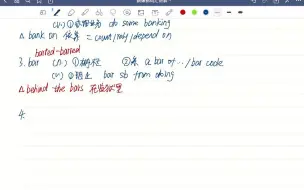 (v.) ① do some banking
△ bank on 依靠 = count/rely/depend on
barred-barred
3. bar (n.) ① ② 条 a bar of../bar code
(v.) ③阻止 bar sb from doing
△ behind the bars
4.